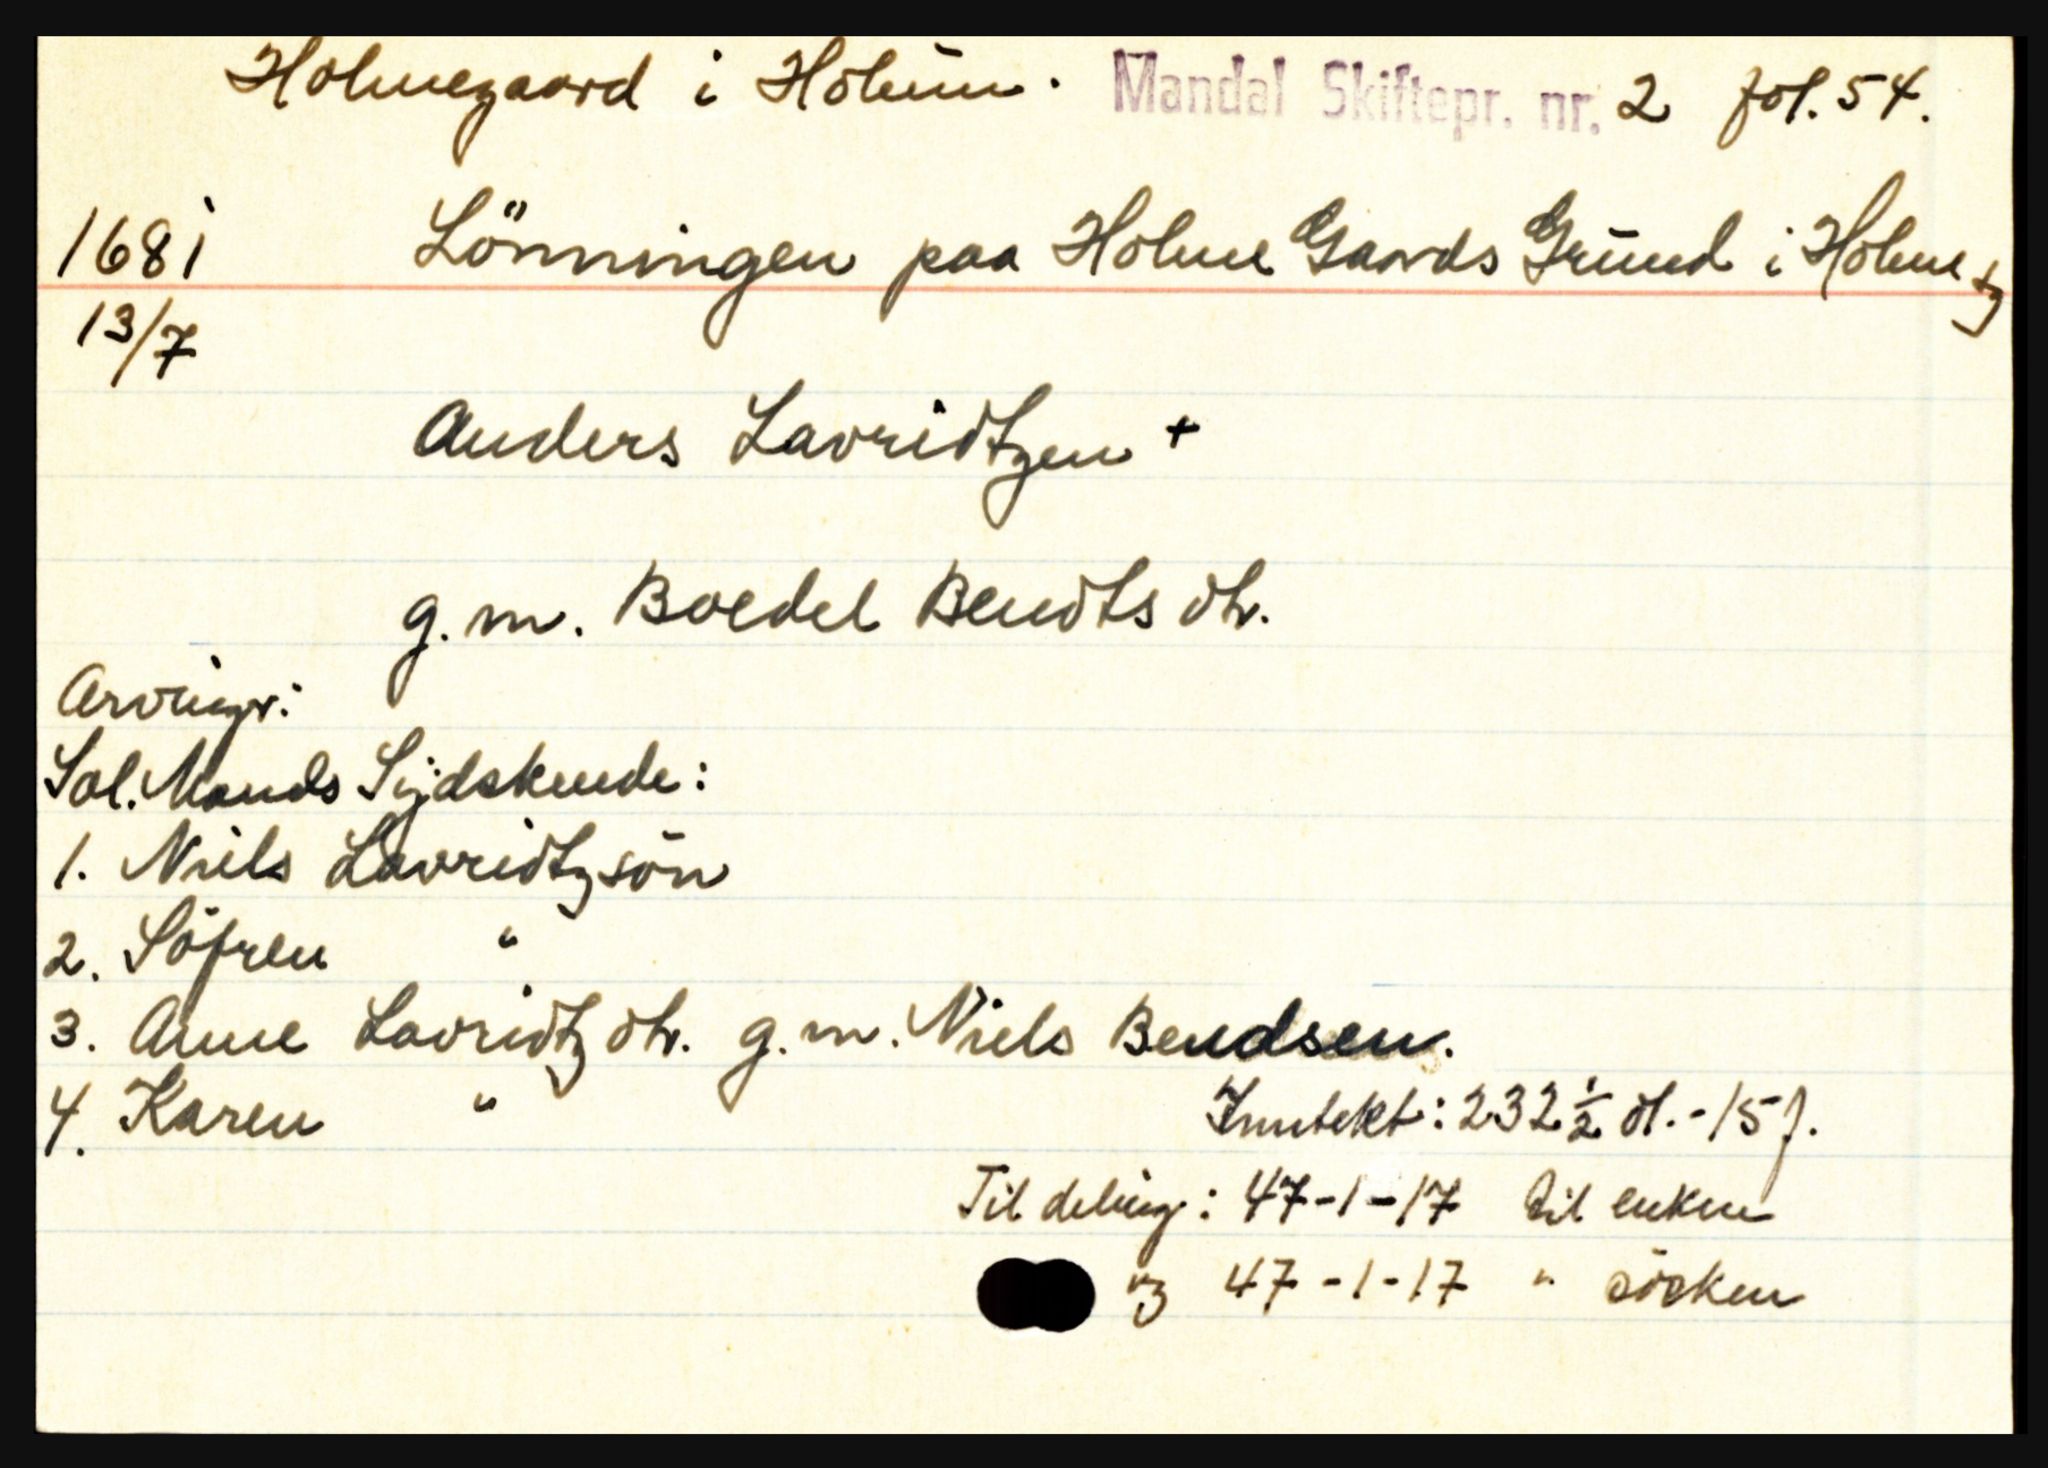 Holmegaard i Holum. Mandal Skiftepr. nr. 2 fol. 54.
1681 Lönningen paa Holme Gaards Grund i Holme tg
13/7
Anders Lavridtzen +
g. m. Boedel Bendts dtr.
Arvingr:
Sal. Mands Sijdskende:
1. Niels Lavridtzsön
2. Söfren "
3. Anne Lavridtz dtr. g. m. Niels Bendsen.
4. Karen "
Inntekt: 232 1/2 dl. - 15 s.
Til deling: 47-1-17 til enken
og 47-1-17 " sösken